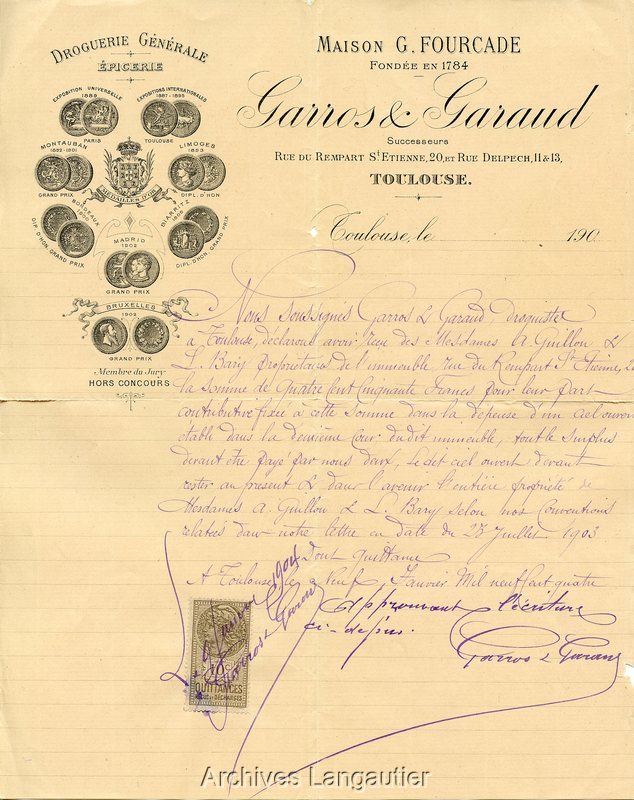 DROGUERIE GÉNÉRALE
ÉPICERIE
EXPOSITION UNIVERSELLE
1889
PARIS
EXPOSITIONS INTERNATIONALES
1887-1895
TOULOUSE
MONTAUBAN
1882-1891
GRAND PRIX
LIMOGES
1893
DIPL. D'HON
MÉDAILLES D'OR
BORDEAUX
1900
DIP. D'HON GRAND PRIX
BIARRITZ
DIPL. D'HON GRAND PRIX
MADRID
1902
GRAND PRIX
BRUXELLES
1902
GRAND PRIX
Membre du Jury
HORS CONCOURS
MAISON G. FOURCADE
FONDÉE EN 1784
Garros & Garaud
Successeurs
RUE DU REMPART St ETIENNE, 20, ET RUE DELPECH, 11 & 13,
TOULOUSE.
Toulouse, le 190
Nous soussignés Garros & Garaud, Droguiste
a Toulouse, déclarons avoir reçu des Mesdames A. Guillou &
L. Bary propriétaires de l'immeuble, rue du Rempart St Etienne, 20
la somme de Quatre Cent Cinquante Francs pour leur part
contributive fixée à cette somme dans la dépense d'un ciel ouvert
établi dans la deuxième Cour du dit immeuble, tout le surplus
devant être payé par nous deux, le dit ciel ouvert devant
rester au present & dans l'avenir l'entière propriété de
Mesdames A. Guillou & L. Bary selon nos Conventions
relatées dans notre lettre en date du 23 Juillet 1903
Dont quittance
A Toulouse le neuf Janvier Mil neuf cent quatre
Approuvant l'écriture
ci-dessus.
Garros & Garaud
Janvier 1904
Garros & Garaud
QUITTANCES
REÇUS ET DÉCHARGES
Archives Langautier